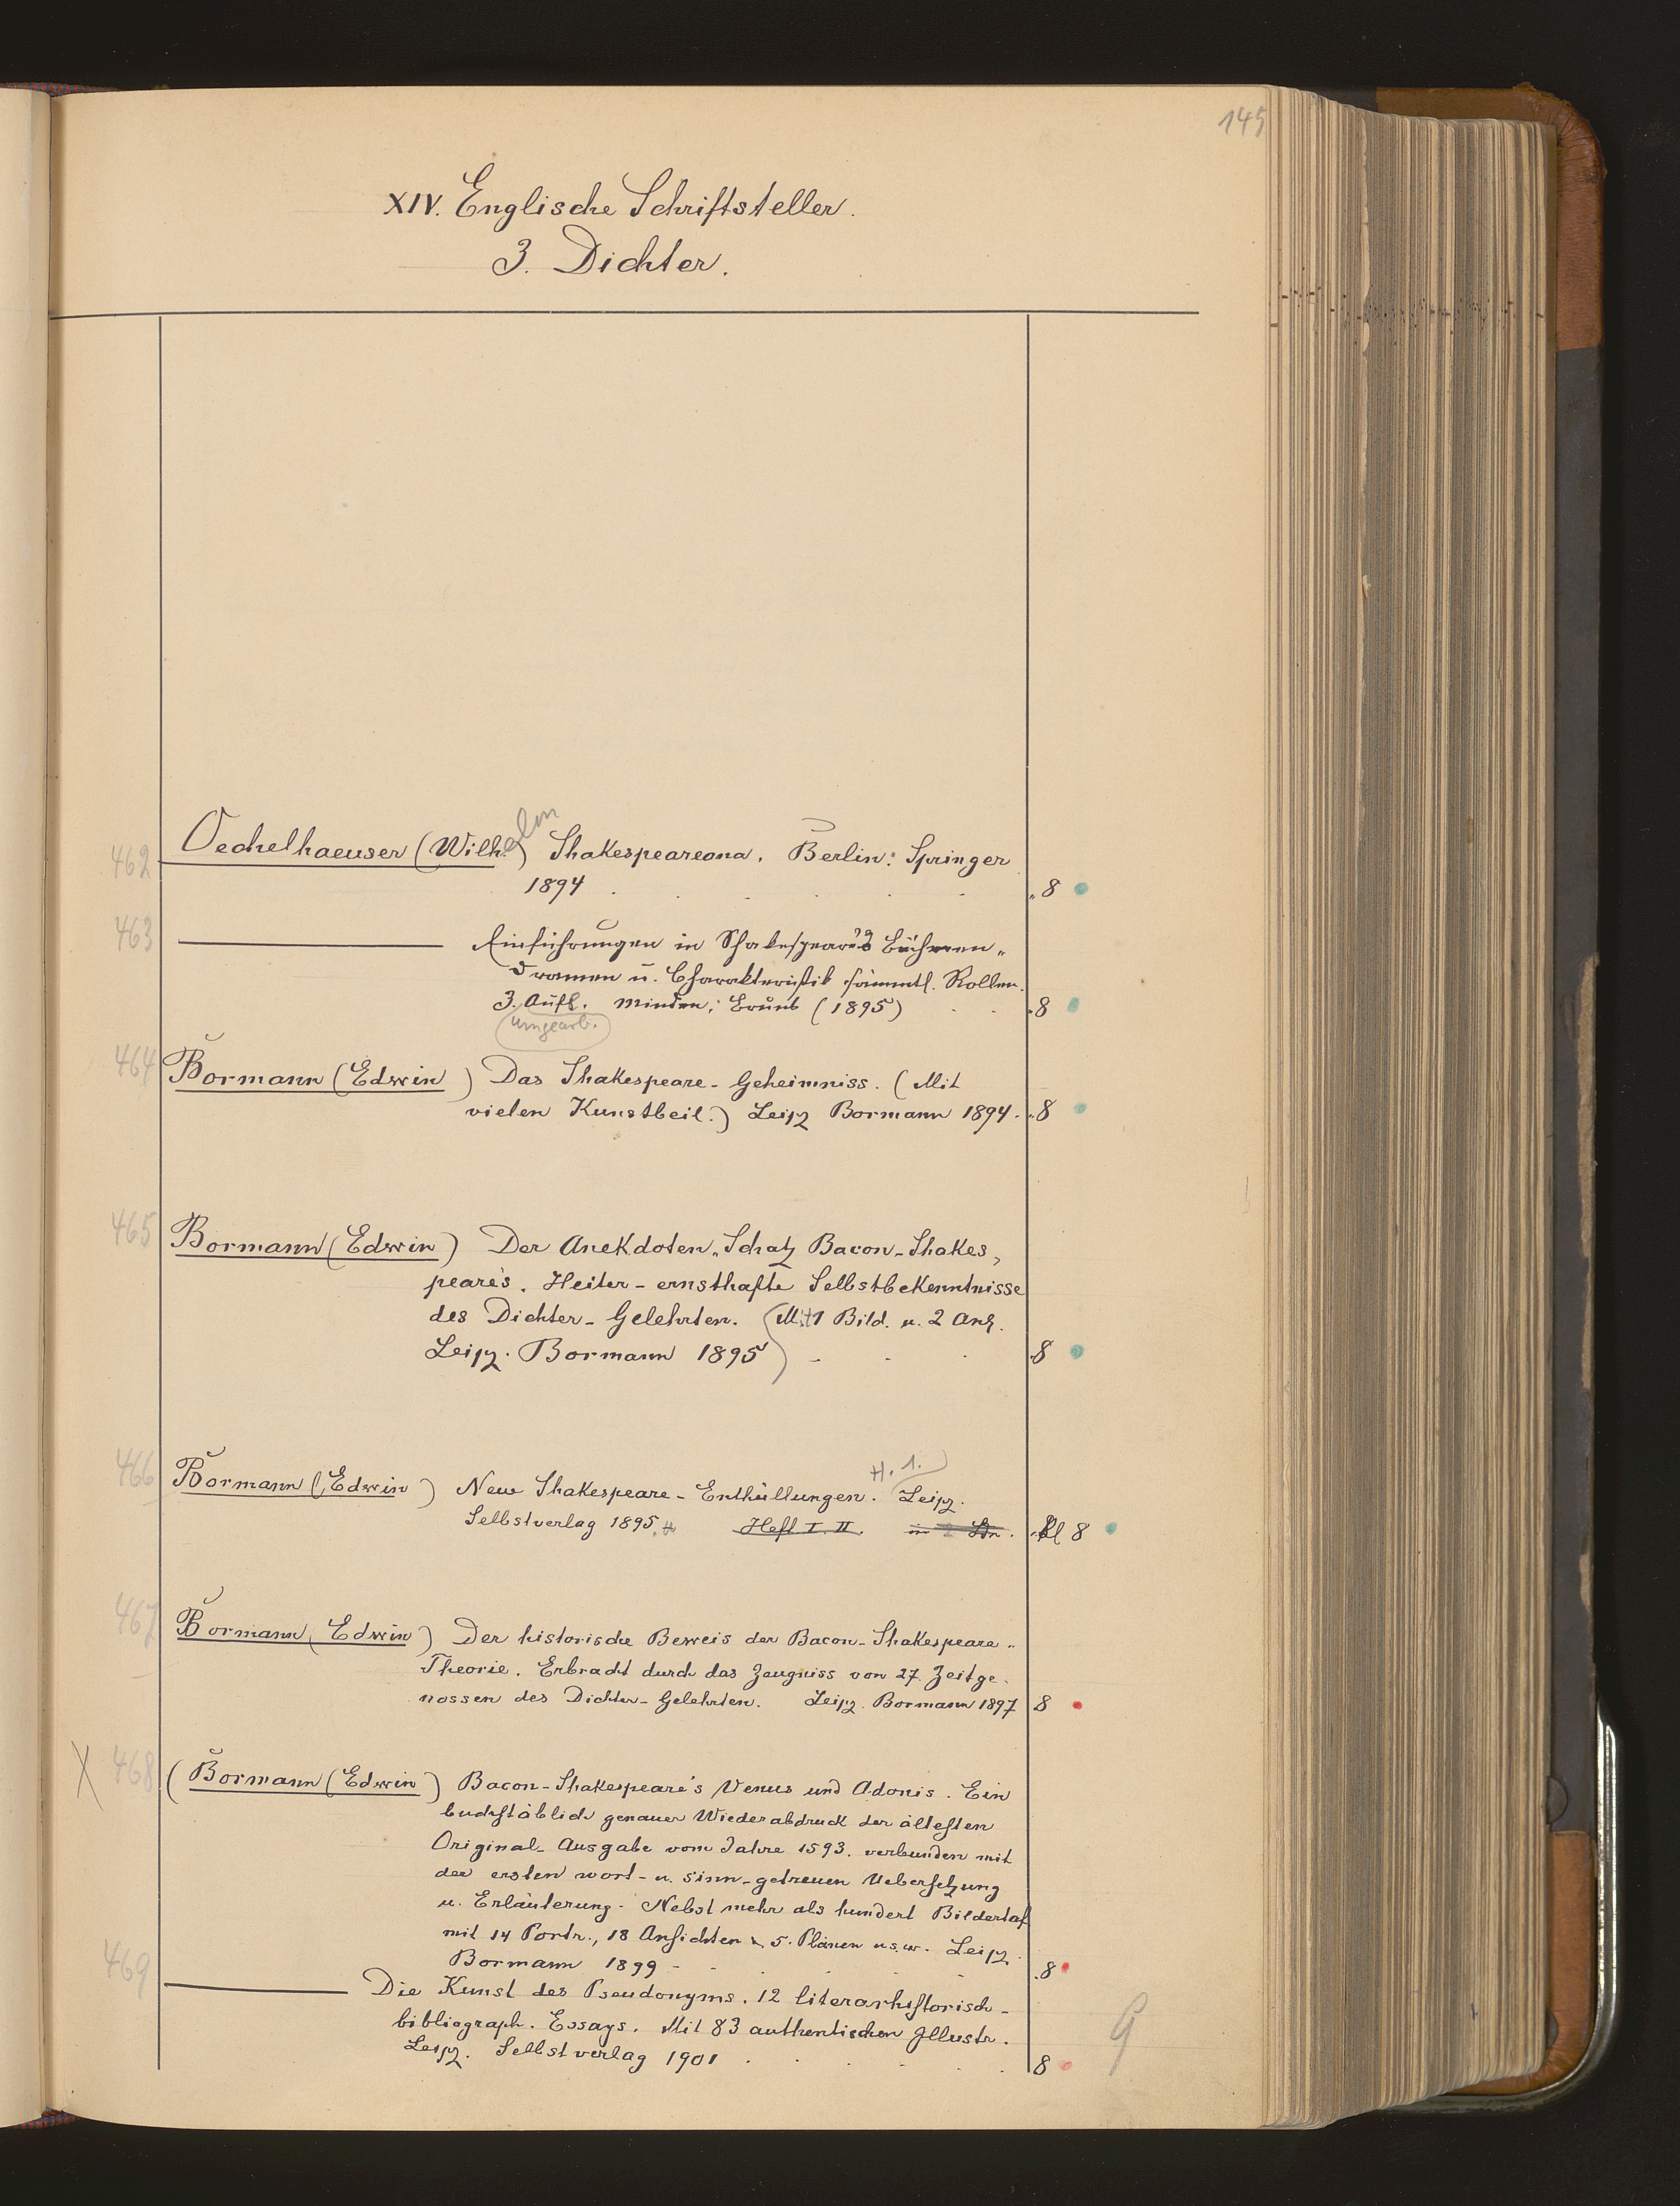 145
XIV. Englische Schriftsteller.
3. Dichter.
462 Oechelhaeuser (Wilhelm) Shakespeareana. Berlin: Springer
1894 . . . . . „ 8
463 ——— Einführungen in Shakespeare's Bühnen„
dramen u. Charakteristik sämmtl. Rollen.
3. Aufl. Minden: Bruns (1895) . . „ 8
umgearb.
464 Bormann (Edwin) Das Shakespeare-Geheimniss. (Mit
vielen Kunstbeil.) Leipz Bormann 1894. „ 8
465 Bormann (Edwin) Der Anekdoten„Schatz Bacon-Shakes„
peare's. Heiter-ernsthafte Selbstbekenntnisse
des Dichter-Gelehrten. (Mit 1 Bild. u. 2 Anh.
Leipz. Bormann 1895) . . . 8
H. 1.
466 Bormann (Edwin) Neue Shakespeare-Enthüllungen. Leipz.
Selbstverlag 1895. H Heft I. II. in 2 Bdn. Kl 8
467 Bormann (Edwin) Der historische Beweis der Bacon-Shakespeare„
Theorie. Erbracht durch das Zeugniss von 27 Zeitge„
nossen des Dichter-Gelehrten. Leipz. Bormann 1897 8
X 468 (Bormann (Edwin) Bacon-Shakespeare's Venus und Adonis. Ein
buchstäblich genauer Wiederabdruck der ältesten
Original-Ausgabe vom Jahre 1593. verbunden mit
der ersten wort- u. sinn-getreuen Uebersetzung
u. Erläuterung. Nebst mehr als hundert Bildertaf
mit 14 Portr., 18 Ansichten u. 5. Plänen u.s.w. Leipz.
Bormann 1899 . . . . . 8
469 ——— Die Kunst des Pseudonyms. 12 literarhistorisch-
bibliograph. Essays. Mit 83 authentischen Illustr.
Leipz. Selbstverlag 1901 . . . . 8
9